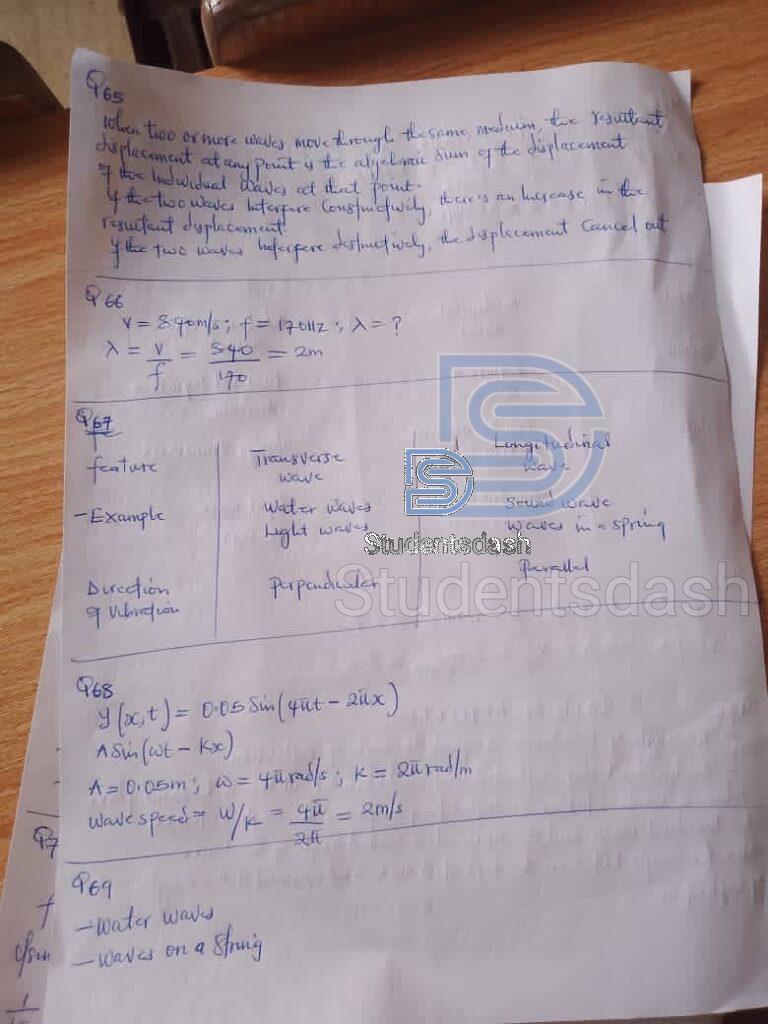 Q65
When two or more waves move through the same medium, the resultant
displacement at any point is the algebraic sum of the displacement
of the individual waves at that point.
If the two waves interfere constructively, there's an increase in the
resultant displacement
If the two waves interfere destructively, the displacement cancel out
Q66
V = 340m/s; f = 170Hz; λ = ?
λ = V/f = 340/170 = 2m
Q67
feature Transverse wave Longitudinal wave
- Example Water waves Light waves Sound wave waves in a spring
Direction of Vibration Perpendicular Parallel
Studentsdash
Studentsdash
Q68
y(x,t) = 0.05 Sin(4πt - 2πx)
A Sin(ωt - kx)
A = 0.05m; ω = 4π rad/s; K = 2π rad/m
Wave speed = W/K = 4π/2π = 2m/s
Q69
- Water waves
- Waves on a String
Q7
f
1